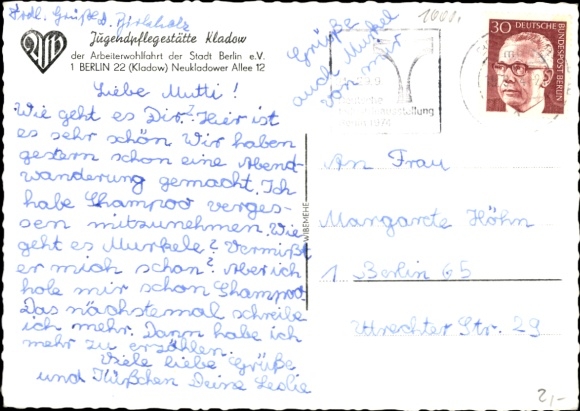 Frdl. Grüße d. Birkholz
Jugendpflegestätte Kladow
der Arbeiterwohlfahrt der Stadt Berlin e.V.
1 BERLIN 22 (Kladow) Neukladower Allee 12
Liebe Mutti!
Wie geht es Dir? Hier ist
es sehr schön. Wir haben
gestern schon eine Abend-
wanderung gemacht. Ich
habe Shampoo verges-
sen mitzunehmen. Wie
geht es Murkele? Vermißt
er mich schon? Aber ich
hole mir schon Shampoo.
Das nächstemal schreibe
ich mehr. Dann habe ich
mehr zu erzählen.
Viele liebe Grüße
und Küßchen Deine Leslie
Grüße
auch Murkel
von mir
30 DEUTSCHE
BUNDESPOST BERLIN
WIBEMEHE
An Frau
Margarete Höhn
1 Berlin 65
Utrechter Str. 29
2,-